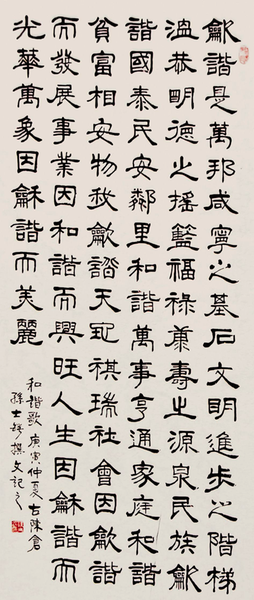 龢諧是萬邦咸寧之基石文明進步之階梯
溫恭明德之搖籃福祿康壽之源泉民族龢
諧國泰民安鄰里和諧萬事亨通家庭和諧
貧富相安物我龢諧天地祺瑞社會因龢諧
而發展事業因和諧而興旺人生因龢諧而
光華萬象因龢諧而美麗
和諧歌庚寅仲夏古陳倉
孫士撰文記之